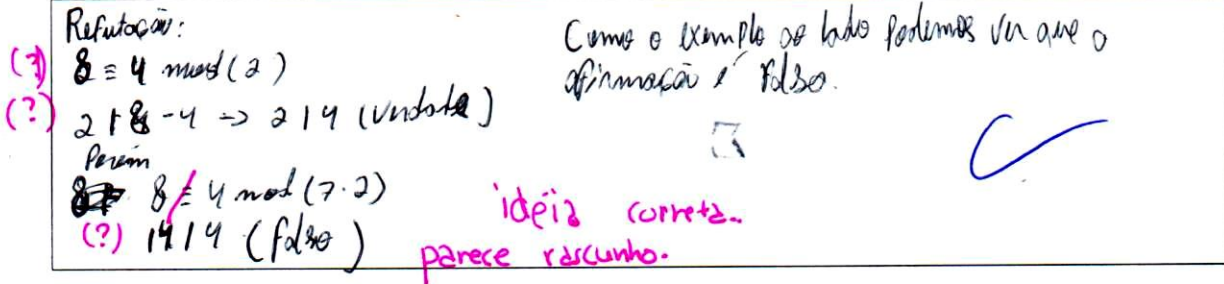 Refutação:
(?) 8 ≡ 4 mod(2)
(?) 2 | 8 - 4 -> 2 | 4 (verdade)
Porém
8 ≢ 4 mod (7·2)
(?) 14 | 4 (falso)
Como o exemplo ao lado podemos ver que a
afirmação é falso.
idéia correta.
parece rascunho.